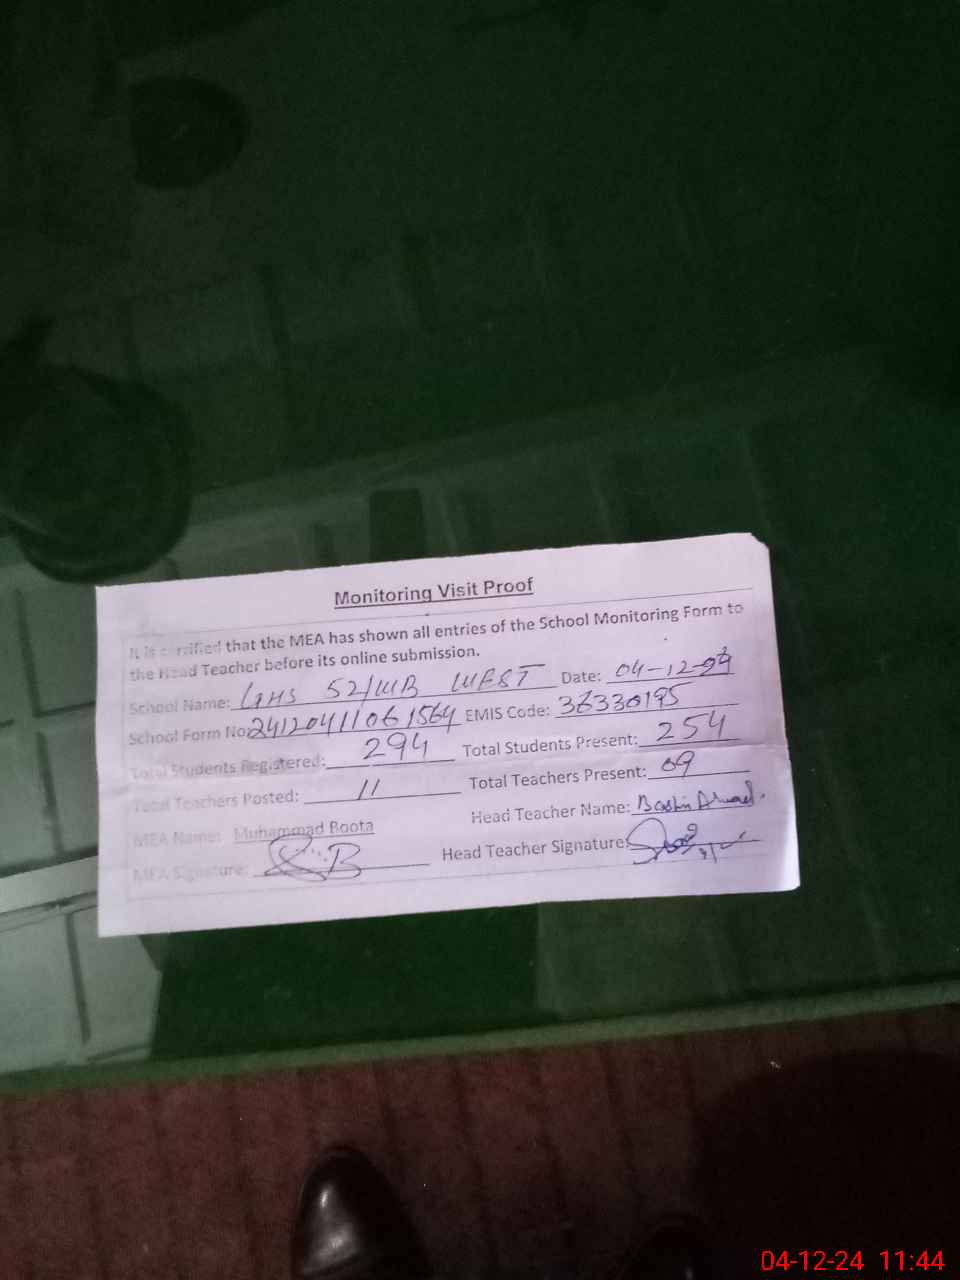 Monitoring Visit Proof
It is certified that the MEA has shown all entries of the School Monitoring Form to
the Head Teacher before its online submission.
School Name: GHS 52/WB WEST Date: 04-12-24
School Form No: 24120411061564 EMIS Code: 36330195
Total Students Registered: 294 Total Students Present: 254
Total Teachers Posted: 11 Total Teachers Present: 09
MEA Name: Muhammad Boota Head Teacher Name: Bashir Ahmad.
MEA Signature: Head Teacher Signature:
04-12-24 11:44